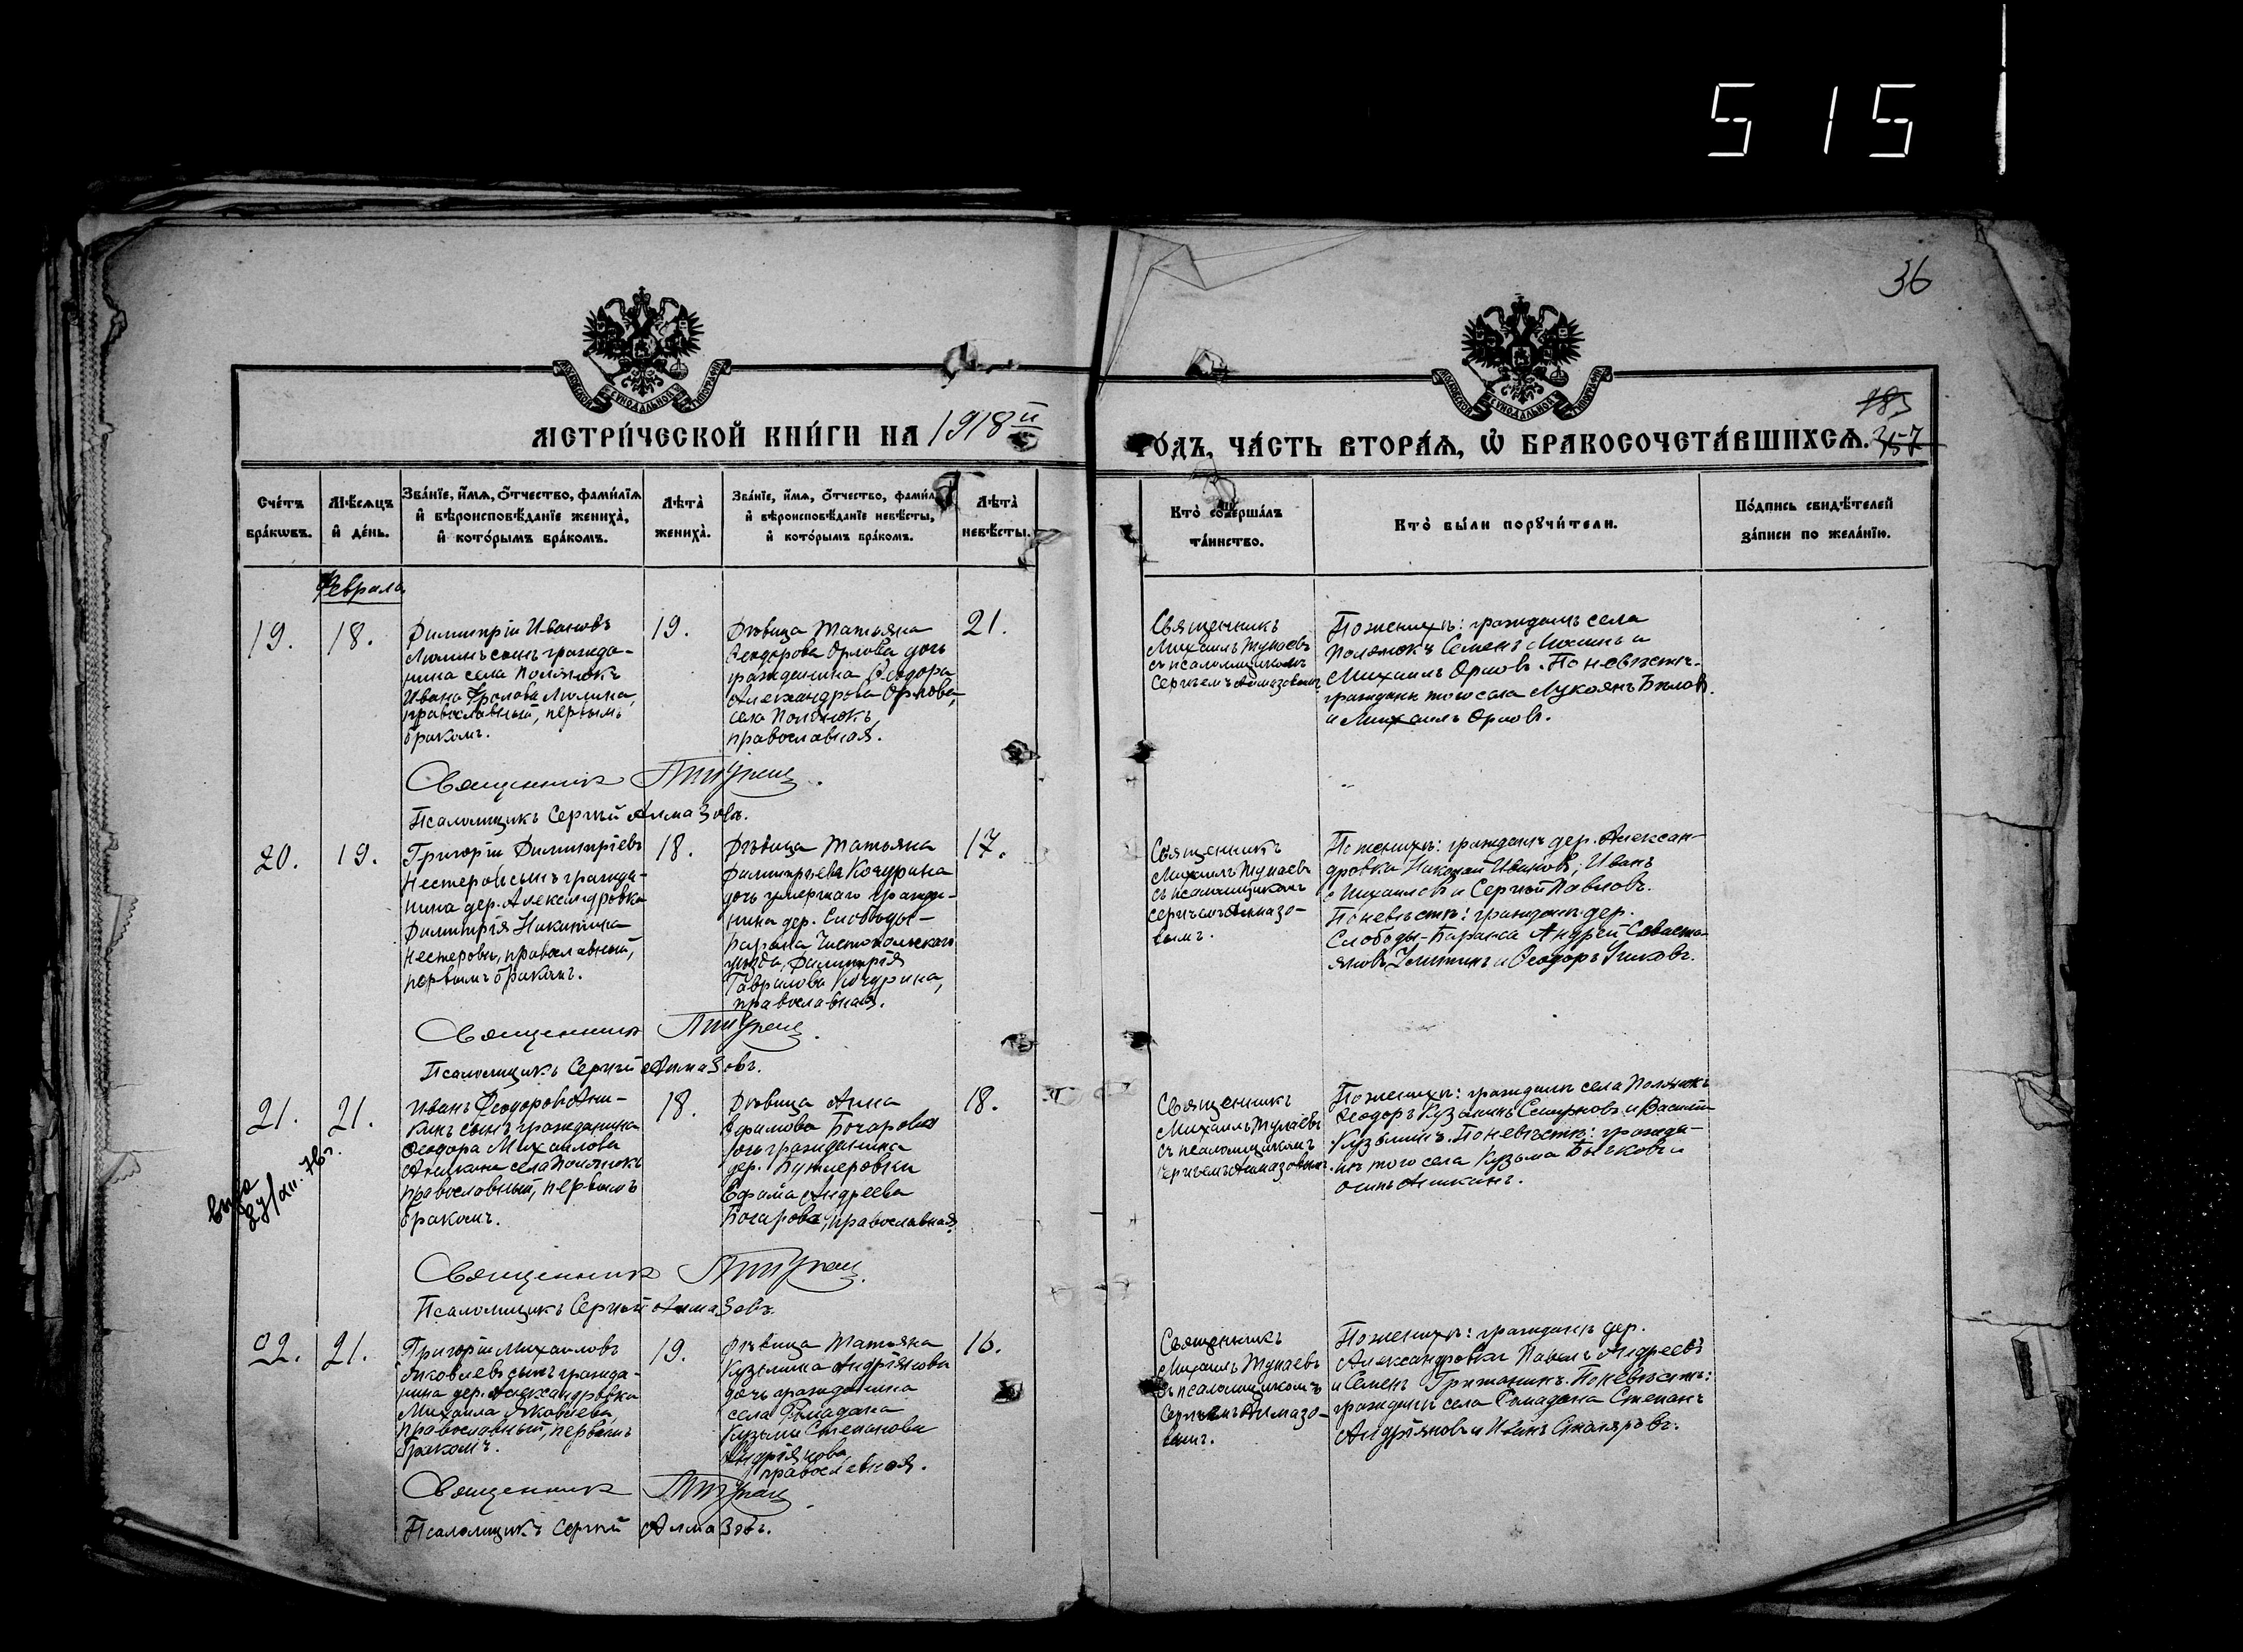 515
36
МОСКОВСКОЙ СѴНОДАЛЬНОЙ ТИПОГРАФІИ
МОСКОВСКОЙ СѴНОДАЛЬНОЙ ТИПОГРАФІИ
МЕТРИ́ЧЕСКОЙ КНИ́ГИ НА 1918й
ГО́ДЪ, ЧА́СТЬ ВТОРА́Я, Ѽ БРАКОСОЧЕТА́ВШИХСЯ.
183
357
Сче́тъ бра́кѡвъ.
Мѣ́сяцъ и҆ де́нь.
Зва́нїе, и҆́мя, ѻ҆́тчество, фами́лїя и҆ вѣроисповѣ́данїе жениха̀, и҆ кото́рымъ бра́комъ.
Лѣта̀ жениха̀.
Зва́нїе, и҆́мя, ѻ҆́тчество, фами́лїя и҆ вѣроисповѣ́данїе невѣ́сты, и҆ кото́рымъ бра́комъ.
Лѣта̀ невѣ́сты.
Кто̀ соверша́лъ та́инство.
Кто̀ бы́ли порꙋчи́тели.
По́дпись свидѣ́телей за́писи по жела́нїю.
Февраля
19.
18.
Димитрій Ивановъ
Люлинъ сынъ гражда-
нина села Полянокъ
Ивана Фролова Люлина,
православный, первымъ
бракомъ.
19.
Дѣвица Татьяна
Ѳеодорова Орлова дочь
гражданина Ѳеодора
Александрова Орлова,
села Полянокъ,
православная.
21.
Священникъ
Михаилъ Тунаевъ
съ псаломщикомъ
Сергіемъ Алмазовымъ.
По женихѣ: граждане села
Полянокъ Семенъ Люлинъ и
Михаилъ Орловъ. По невѣстѣ-
граждане того села Лукоянъ Бѣловъ
и Михаилъ Орловъ.
Священникъ
Псаломщикъ Сергѣй Алмазовъ.
20.
19.
Григорій Димитріевъ
Нестеровъ сынъ гражда-
нина дер. Александровка
Димитрія Никитина
Нестерова, православный,
первымъ бракомъ.
18.
Дѣвица Татьяна
Димитріева Кочурина
дочь умершаго гражда-
нина дер. Слободы-
Барана Чистопольскаго
уѣзда, Димитрія
Гаврилова Кочурина,
православная.
17.
Священникъ
Михаилъ Тунаевъ
съ псаломщикомъ
Сергіемъ Алмазо-
вымъ.
По женихѣ: граждане дер. Алексан-
дровка Николай Ивановъ, Иванъ
Михаиловъ и Сергѣй Павловъ.
По невѣстѣ: граждане дер.
Слободы-Барана Андрей Севасть-
яновъ и Ѳеодоръ
Священникъ
Псаломщикъ Сергѣй Алмазовъ.
21.
21.
Иванъ Ѳеодоровъ Ани-
кинъ сынъ гражданина
Ѳеодора Михаилова
Аникина села Полянокъ
православный, первымъ
бракомъ.
18.
Дѣвица Анна
Ефимова Бочарова
дочь гражданина
дер. Бутлеровки
Ефима Андреева
Бочарова, православная.
18.
Священникъ
Михаилъ Тунаевъ
съ псаломщикомъ
Сергіемъ Алмазовымъ.
По женихѣ: граждане села Полянокъ
Ѳеодоръ Кузьминъ Смирновъ и Василій
Кузьминъ. По невѣстѣ: гражда-
не того села Кузьма Бычковъ и
Осипъ Аникинъ.
Священникъ
Псаломщикъ Сергѣй Алмазовъ.
22.
21.
Григорій Михаиловъ
Яковлевъ сынъ гражда-
нина дер. Александровка
Михаила Яковлева,
православный, первымъ
бракомъ.
19.
Дѣвица Татьяна
Кузьмина Андріянова
дочь гражданина
села Рамадана
Кузьмы Степанова
Андріянова,
православная.
16.
Священникъ
Михаилъ Тунаевъ
съ псаломщикомъ
Сергіемъ Алмазо-
вымъ.
По женихѣ: граждане дер.
Александровка Павелъ Андреевъ
и Семенъ По невѣстѣ:
граждане села Рамадана Степанъ
Андріяновъ и Иванъ Столяровъ.
Священникъ
Псаломщикъ Сергѣй Алмазовъ.